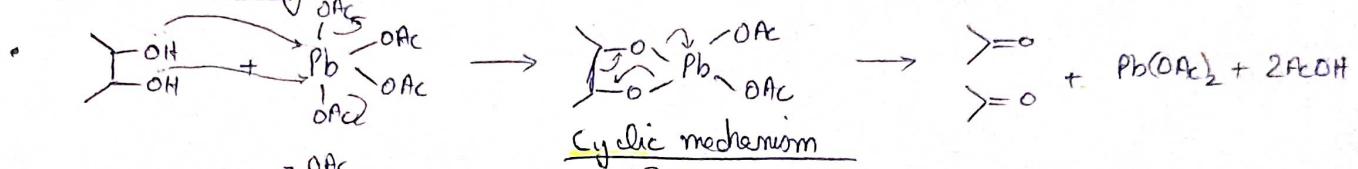 OAc
OH + Pb OAc OAc OAc → O O Pb OAc OAc → =O =O + Pb(OAc)2 + 2AcOH
OH
Cyclic mechanism
OAc